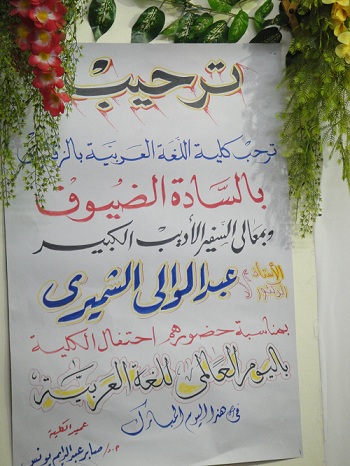 ترحيب
ترحب كلية اللغة العربية بالزقازيق
بالسادة الضيوف
وبمعالى السفير الأديب الكبير
الأستاذ الدكتور/ عبد الوالى الشميرى
بمناسبة حضورهم احتفال الكلية
باليوم العالمى للغة العربية
فى هذا اليوم المبارك
عميد الكلية
أ.د/ صابر عبد الدايم يونس